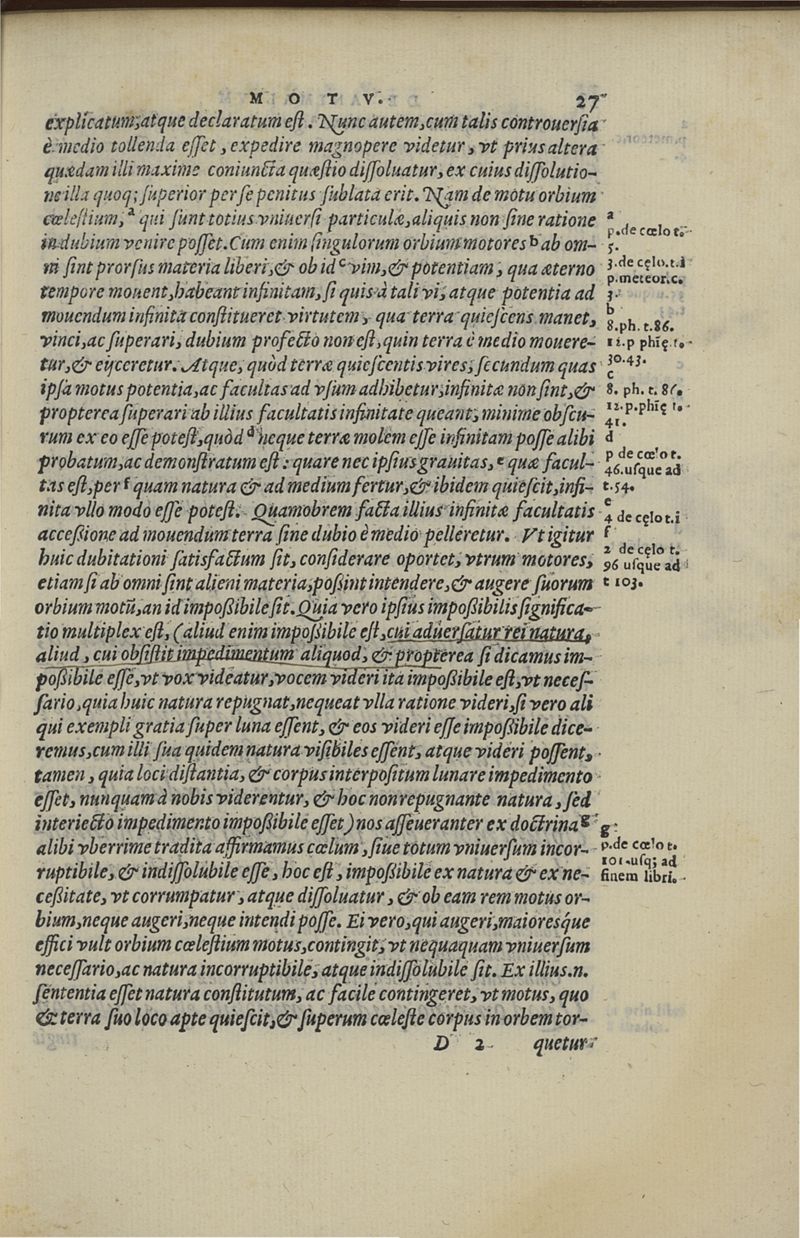 M O T V.
27
explicatum, atque declaratum est. Nunc autem, cum talis controuersia
è medio tollenda esset, expedire magnopere videtur, vt prius altera
quædam illi maxime coniuncta quæstio dissoluatur, ex cuius dissolutio-
ne illa quoq; superior per se penitus sublata erit. Nam de motu orbium
cœlestium, ª qui sunt totius vniuersi particulæ, aliquis non sine ratione
in dubium venire posset. Cum enim singulorum orbium motores ᵇ ab om-
ni sint prorsus materia liberi, & ob id ᶜ vim, & potentiam, qua æterno
tempore mouent, habeant infinitam, si quis à tali vi, atque potentia ad
mouendum infinita constitueret virtutem, qua terra quiescens manet,
vinci, ac superari, dubium profecto non est, quin terra è medio mouere-
tur, & eijceretur. Atque, quòd terræ quiescentis vires, secundum quas
ipsa motus potentia, ac facultas ad vsum adhibetur, infinitæ non sint, &
propterea superari ab illius facultatis infinitate queant, minime obscu-
rum ex eo esse potest, quòd ᵈ neque terræ molem esse infinitam posse alibi
probatum, ac demonstratum est: quare nec ipsius grauitas, ᵉ quæ facul-
tas est, per ᶠ quam natura & ad medium fertur, & ibidem quiescit, infi-
nita vllo modo esse potest. Quamobrem facta illius infinitæ facultatis
accessione ad mouendum terra sine dubio è medio pelleretur. Vt igitur
huic dubitationi satisfactum sit, considerare oportet, vtrum motores,
etiam si ab omni sint alieni materia, possint intendere, & augere suorum
orbium motū, an id impossibile sit. Quia vero ipsius impossibilis significa-
tio multiplex est, (aliud enim impossibile est, cui aduersatur rei natura,
aliud, cui obsistit impedimentum aliquod, & propterea si dicamus im-
possibile esse, vt vox videatur, vocem videri ita impossibile est, vt neces-
sario, quia huic natura repugnat, nequeat vlla ratione videri, si vero ali
qui exempli gratia super luna essent, & eos videri esse impossibile dice-
remus, cum illi sua quidem natura visibiles essent, atque videri possent,
tamen, quia loci distantia, & corpus interpositum lunare impedimento
esset, nunquam à nobis viderentur, & hoc non repugnante natura, sed
interiecto impedimento impossibile esset) nos asseueranter ex doctrina ᵍ
alibi vberrime tradita affirmamus cœlum, siue totum vniuersum incor-
ruptibile, & indissolubile esse, hoc est, impossibile ex natura & ex ne-
cessitate, vt corrumpatur, atque dissoluatur, & ob eam rem motus or-
bium, neque augeri, neque intendi posse. Ei vero, qui augeri, maioresque
effici vult orbium cœlestium motus, contingit, vt nequaquam vniuersum
necessario, ac natura incorruptibile, atque indissolubile sit. Ex illius.n.
sententia esset natura constitutum, ac facile contingeret, vt motus, quo
& terra suo loco apte quiescit, & superum cœleste corpus in orbem tor-
D 2 quetur
a
p.de cœlo t.
5.
3.de cęlo.t.i
p.meteor.c.
3.
b
8.ph.t.86.
12.p phię t.
30.43.
c
8. ph. t. 86.
12.p.phię t.
41.
d
p de cœlo t.
46.usque ad
t.54.
e
4 de cęlo t.i
f
2 de cęlo t.
96 usque ad
t 103.
g
p.de cœlo t.
101.usq; ad
finem libri.